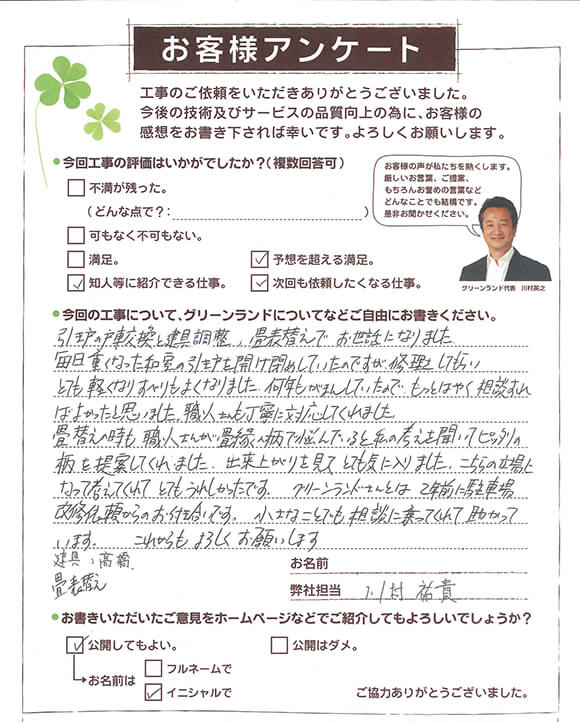 お客様アンケート
工事のご依頼をいただきありがとうございました。
今後の技術及びサービスの品質向上の為に、お客様の
感想をお書き下されば幸いです。よろしくお願いします。
●今回工事の評価はいかがでしたか？（複数回答可）
不満が残った。
（どんな点で？：　）
可もなく不可もない。
満足。
✓予想を超える満足。
✓知人等に紹介できる仕事。
✓次回も依頼したくなる仕事。
お客様の声が私たちを熱くします。
厳しいお言葉、ご提案、
もちろんお誉めの言葉など
どんなことでも結構です。
是非お聞かせください。
グリーンランド代表　川村英之
●今回の工事について、グリーンランドについてなどご自由にお書きください。
引戸の戸車交換と建具調整、畳表替えでお世話になりました
毎日重くなった和室の引戸を開け閉めしていたのですが修理してもらい
とても軽くなりすべりもよくなりました。何年もがまんしていたので、もっとはやく相談すれ
ばよかったと思いました。職人さんも丁寧に対応してくれました。
畳替えの時も、職人さんが畳縁の柄で悩んでいると私の考えを聞いてピッタリの
柄を提案してくれました。出来上がりを見てとても気に入りました。こちらの立場に
なって考えてくれてとてもうれしかったです。グリーンランドさんとは2年前に駐車場
改修依頼からのお付合いです。小さなことでも相談に乗ってくれて助かって
います。これからもよろしくお願いします
建具：高橋
畳表替え
お名前
弊社担当　川村祐貴
●お書きいただいたご意見をホームページなどでご紹介してもよろしいでしょうか？
✓公開してもよい。
公開はダメ。
お名前は
フルネームで
✓イニシャルで
ご協力ありがとうございました。